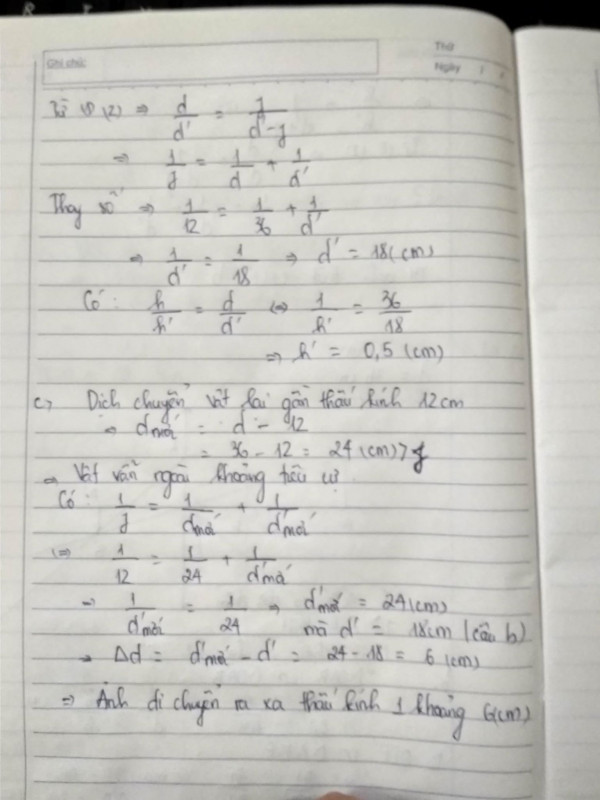 Ghi chú:
Thứ
Ngày / /
Từ (1) (2) ⇒ d/d' = f/(d'-f)
⇒ 1/f = 1/d + 1/d'
Thay số ⇒ 1/12 = 1/36 + 1/d'
⇒ 1/d' = 1/18 ⇒ d' = 18(cm)
Có: h/h' = d/d' ⇔ 1/h' = 36/18
⇒ h' = 0,5 (cm)
c, Dịch chuyển vật lại gần thấu kính 12cm
⇒ dmới = d - 12
= 36 - 12 = 24 (cm) > f
⇒ Vật vẫn ngoài khoảng tiêu cự
Có: 1/f = 1/dmới + 1/d'mới
⇔ 1/12 = 1/24 + 1/d'mới
→ 1/d'mới = 1/24 ⇒ d'mới = 24(cm)
mà d' = 18cm (câu b)
→ Δd = d'mới - d' = 24 - 18 = 6 (cm)
⇒ Ảnh di chuyển ra xa thấu kính 1 khoảng 6(cm)